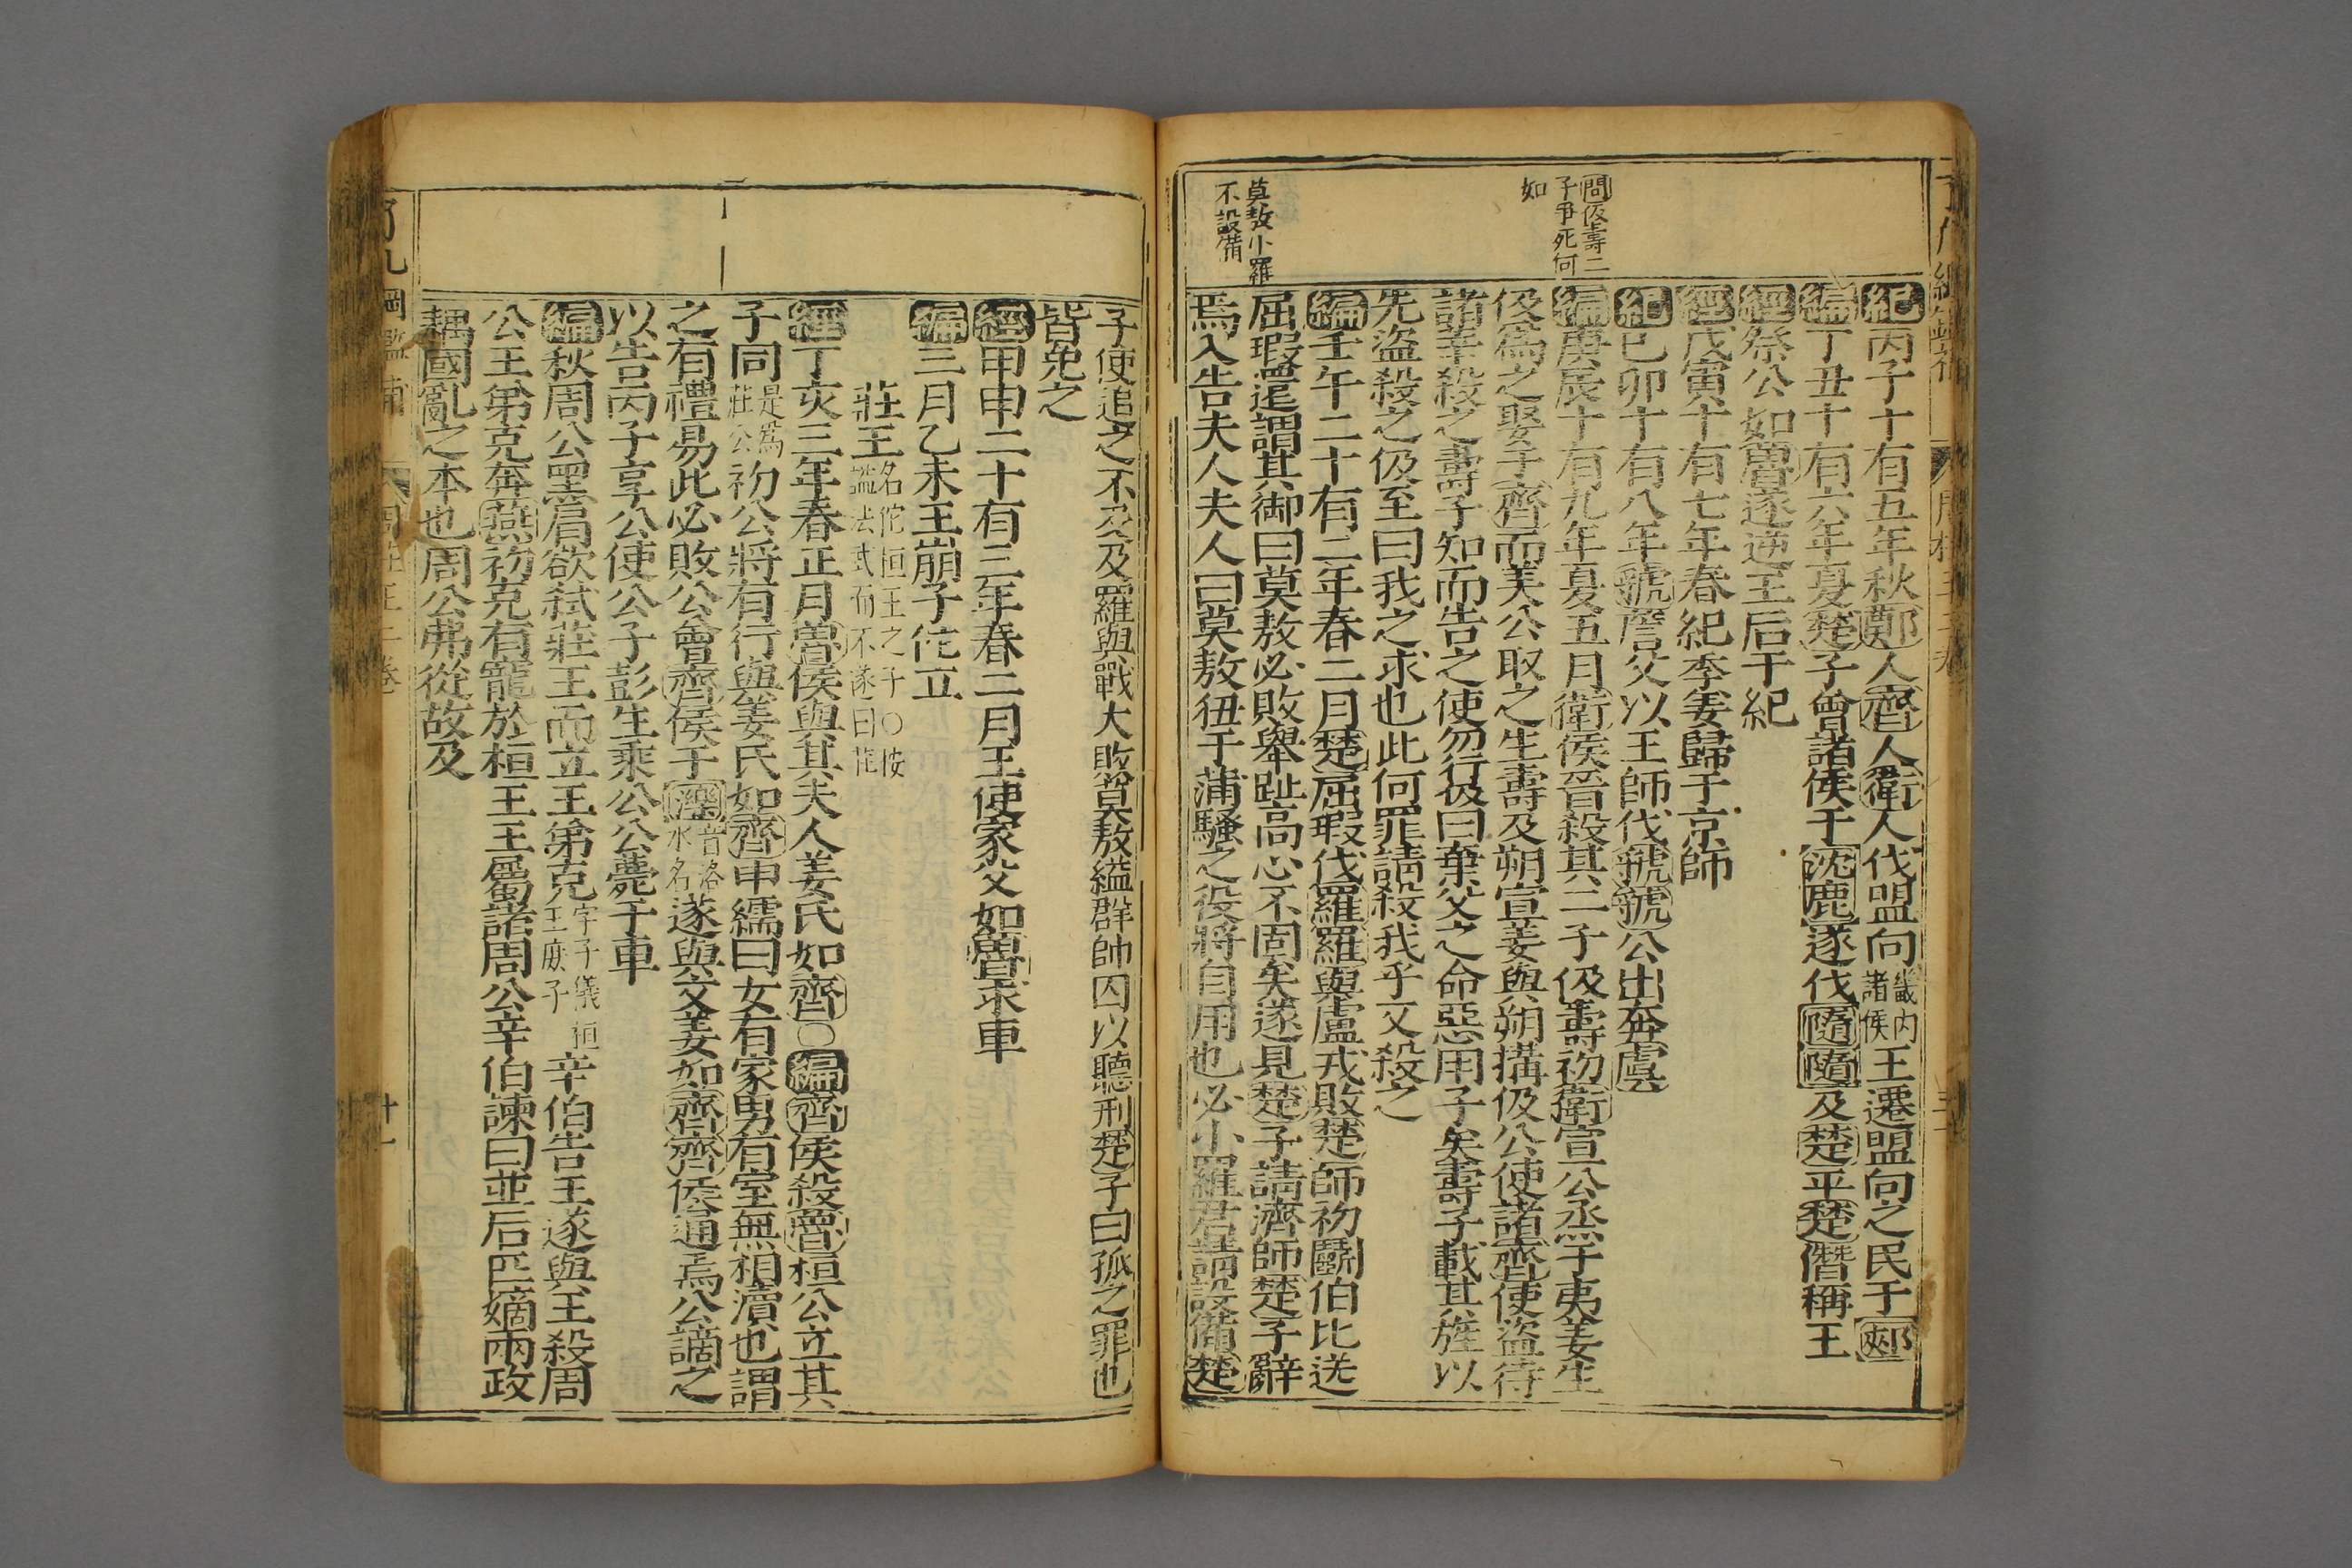 問伋壽二
子爭死何
如
莫敖小羅
不設備
紀丙子十有五年秋鄭人齊人衛人伐盟向畿內諸侯王遷盟向之民于郟
編丁丑十有六年夏楚子會諸侯于沈鹿遂伐隨隨及楚平楚僭稱王
經祭公如魯遂逆王后于紀
經戊寅十有七年春紀季姜歸于京師
紀己卯十有八年虢詹父以王師伐虢虢公出奔虞
編庚辰十有九年夏五月衛侯晉殺其二子伋壽初衛宣公烝于夷姜生
伋爲之娶于齊而美公取之生壽及朔宣姜與朔搆伋公使諸齊使盜待
諸莘殺之壽子知而告之使勿行伋曰棄父之命惡用子矣壽子載其旌以
先盜殺之伋至曰我之求也此何罪請殺我乎又殺之
編壬午二十有二年春二月楚屈瑕伐羅羅與盧戎敗楚師初鬭伯比送
屈瑕還謂其御曰莫敖必敗舉趾高心不固矣遂見楚子請濟師楚子辭
焉入告夫人夫人曰莫敖狃于蒲騷之役將自用也必小羅君請設備楚
子使追之不及及羅與戰大敗莫敖縊群帥囚以聽刑楚子曰孤之罪也
皆免之
經甲申二十有三年春二月王使家父如魯求車
編三月乙未王崩子佗立
莊王名佗桓王之子○按諡法武而不遂曰莊
經丁亥三年春正月魯侯與其夫人姜氏如齊○編齊侯殺魯桓公立其
子同是爲莊公初公將有行與姜氏如齊申繻曰女有家男有室無相瀆也謂
之有禮易此必敗公會齊侯于濼音洛水名遂與文姜如齊齊侯通焉公謫之
以告丙子享公使公子彭生乘公公薨于車
編秋周公黑肩欲弑莊王而立王弟克字子儀桓王庶子辛伯告王遂與王殺周
公王弟克奔燕初克有寵於桓王王屬諸周公辛伯諫曰並后匹嫡兩政
耦國亂之本也周公弗從故及
十一